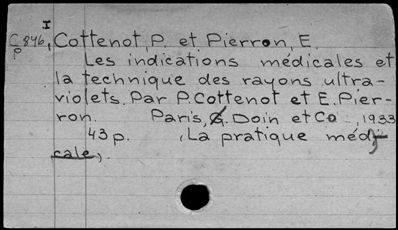 I
C846, Cottenot, P. et Pierron, E.
p
Les indications médicales et
la technique des rayons ultra-
violets. Par P. Cottenot et E. Pier-
ron. Paris, G. Doin et Co., 1933
43 p. (La pratique médi-
cale).